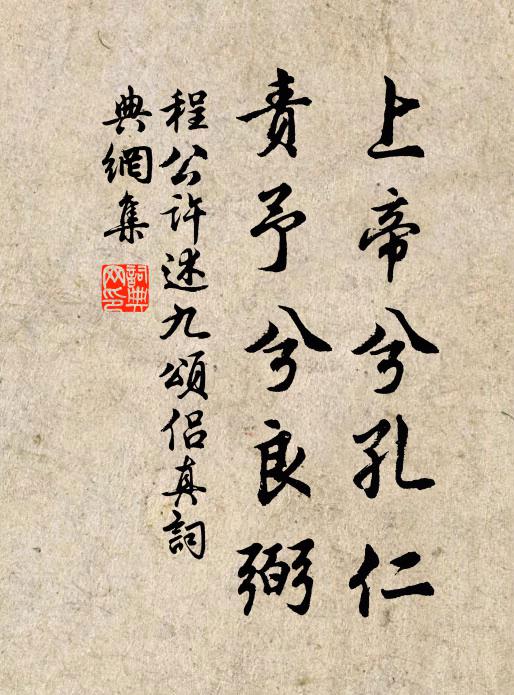 上帝兮孔仁
責予兮良弼
程公許述九頌侶真詞
典網集
詞典網印